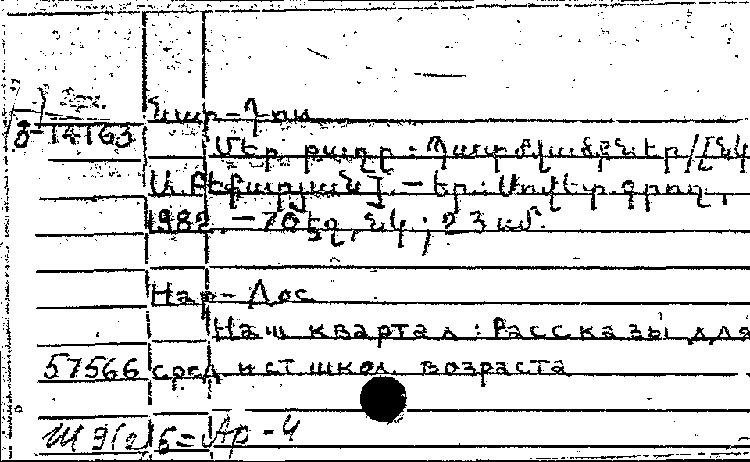 8-14163
Նար-Դոս
Մեր թաղը: Պատմվածքներ/[Նկ
Ա. Բեքարյան]. — Եր.: Սովետ. գրող,
1982. — 70 էջ, նկ.; 23 սմ.
Нар-Дос
Наш квартал: Рассказы для
57566 сред и ст. школ. возраста
Ар-4